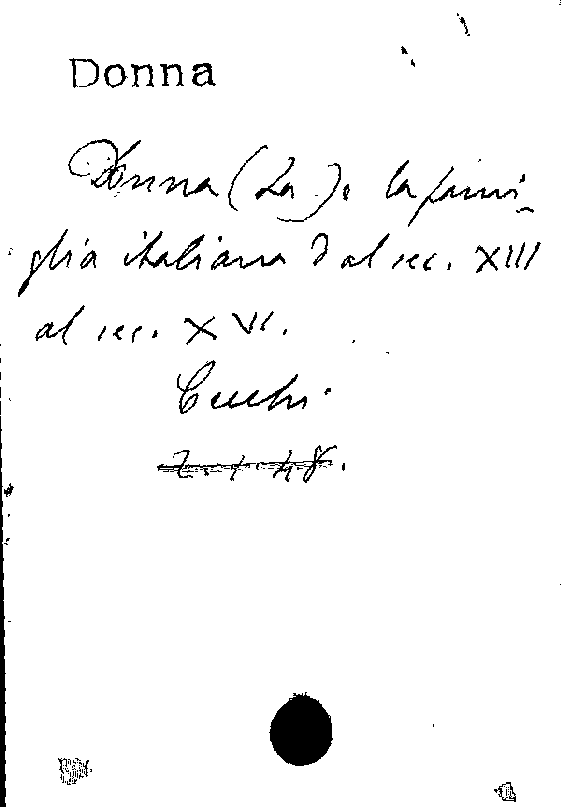 Donna
Donna (La) e la fami-
glia italiana dal sec. XIII
al sec. XVI.
Cecchi.